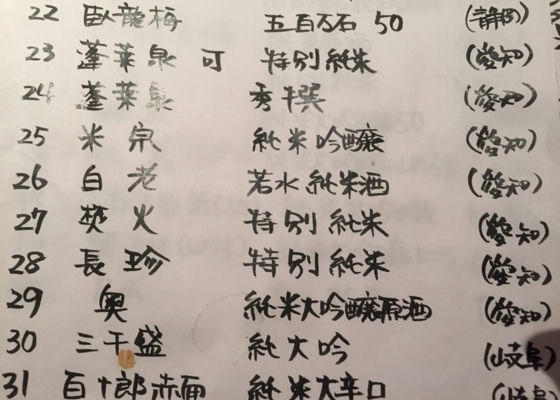 22 臥龍梅 五百万石 50 (静岡)
23 蓬莱泉 可 特別純米 (愛知)
24 蓬莱泉 秀撰 (愛知)
25 米宗 純米吟醸 (愛知)
26 白老 若水純米酒 (愛知)
27 焚火 特別純米 (愛知)
28 長珍 特別純米 (愛知)
29 奥 純米大吟醸原酒 (愛知)
30 三千盛 純大吟 (岐阜)
31 百十郎赤面 純米大辛口 (岐阜)